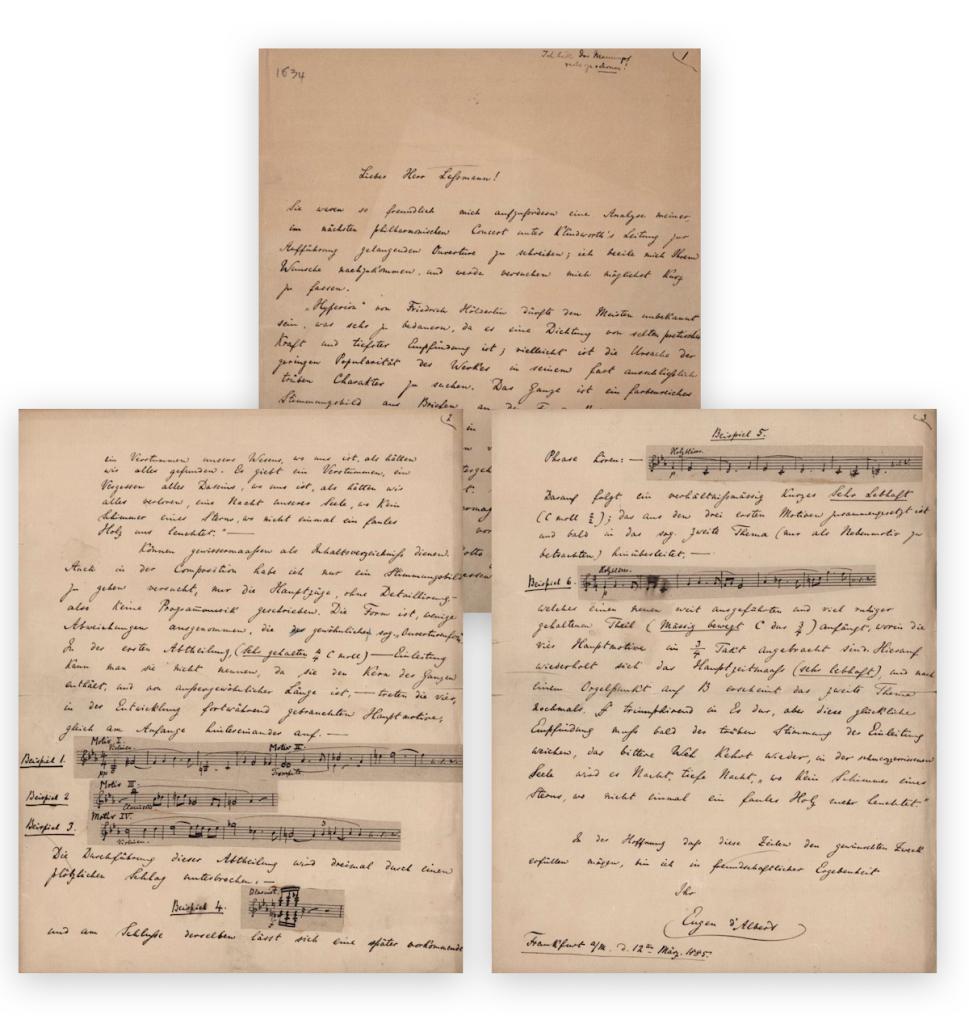 1634
1
Lieber Herr Leßmann!
Sie waren so freundlich mich aufzufordern eine Analyse meiner,
im nächsten philharmonischen Concert unter Klindworth's Leitung zur
Aufführung gelangenden Ouverture zu schreiben; ich beeile mich Ihrem
Wunsche nachzukommen, und werde versuchen mich möglichst kurz
zu fassen.
„Hyperion" von Friedrich Hölderlin dürfte den Meisten unbekannt
sein, was sehr zu bedauern, da es eine Dichtung von selten poetischer
Kraft und tiefster Empfindung ist; vielleicht ist die Ursache der
geringen Popularität des Werkes in seinem fast ausschließlich
trüben Charakter zu suchen. Das Ganze ist ein farbenreiches
Stimmungsbild aus Briefen an
2
ein Verstummen unseres Wesens, wo uns ist, als hätten
wir alles gefunden. Es giebt ein Verstummen, ein
Vergessen alles Daseins, wo uns ist, als hätten wir
alles verloren, eine Nacht unserer Seele, wo kein
Schimmer eines Sterns, wo nicht einmal ein faules
Holz uns leuchtet." —
können gewissermaassen als Inhaltsverzeichniß dienen.
Auch in der Composition habe ich nur ein Stimmungsbild
zu geben versucht, nur die Hauptzüge, ohne Detaillirung,—
also keine Programmusik geschrieben. Die Form ist, wenige
Abweichungen ausgenommen, die der gewöhnlichen sog. Ouverturenform
In der ersten Abtheilung, (Sehr gehalten 4/4 C moll) — Einleitung
kann man sie nicht nennen, da sie den Kern des Ganzen
enthält, und von außergewöhnlicher Länge ist, — treten die vier,
in der Entwicklung fortwährend gebrauchten Hauptmotive,
gleich am Anfange hintereinander auf. —
Motiv I. Motiv II.
Violinen.
Beispiel 1.
pp Trompete
Motiv III.
Beispiel 2
Clarinette
Motiv IV.
Beispiel 3.
Violinen.
Die Durchführung dieser Abtheilung wird dreimal durch einen
plötzlichen Schlag unterbrochen. —
Beispiel 4.
und am Schluße derselben lässt sich eine später vorkommende
3
Beispiel 5.
Phrase hören: —
p
Darauf folgt ein verhältnißmässig kurzes Sehr Lebhaft
(C moll 2/2); das aus den drei ersten Motiven zusammengesetzt ist
und bald in das sog. zweite Thema (nur als Nebenmotiv zu
betrachten) hinüberleitet. —
Beispiel 6.
welches einen neuen weit ausgeführten und viel ruhiger
gehaltenen Theil (Mässig bewegt C dur 3/4) anfängt, worin die
vier Hauptmotive in 3/4 Takt angebracht sind. Hierauf
wiederholt sich das Hauptzeitmaaß (sehr lebhaft), und nach
einem Orgelpunkt auf B erscheint das zweite Thema
nochmals, ff triumphirend in Es dur, aber diese glückliche
Empfindung muß bald der trüben Stimmung der Einleitung
weichen, das bittere Weh kehrt wieder, in der schmerzzerrissenen
Seele wird es Nacht, tiefe Nacht, „wo kein Schimmer eines
Sterns, wo nicht einmal ein faules Holz mehr leuchtet."
In der Hoffnung daß diese Zeilen den gewünschten Zweck
erfüllen mögen, bin ich in freundschaftlicher Ergebenheit
Ihr
Eugen d'Albert
Frankfurt a/M. d. 12ten März. 1885.